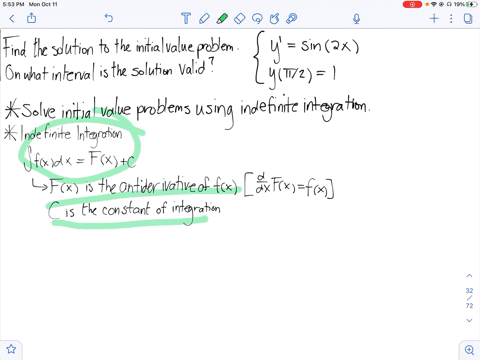 5:53 PM Mon Oct 11
19%
Find the solution to the initial value problem. { y' = sin(2x)
On what interval is the solution valid? y(π/2) = 1
*Solve initial value problems using indefinite integration.
*Indefinite Integration
∫f(x)dx = F(x)+C
↳F(x) is the antiderivative of f(x) [d/dx F(x)=f(x)]
C is the constant of integration
32
/
72